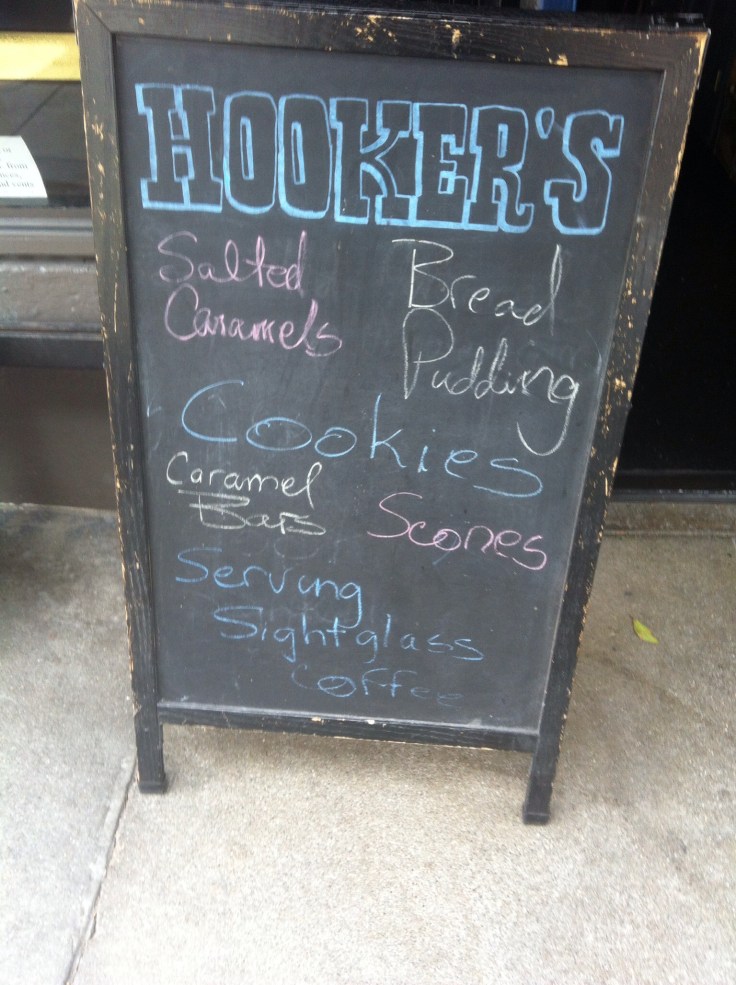 HOOKER'S
Salted
Caramels
Bread
Pudding
Cookies
Caramel
Bars
Scones
Serving
Sightglass
Coffee